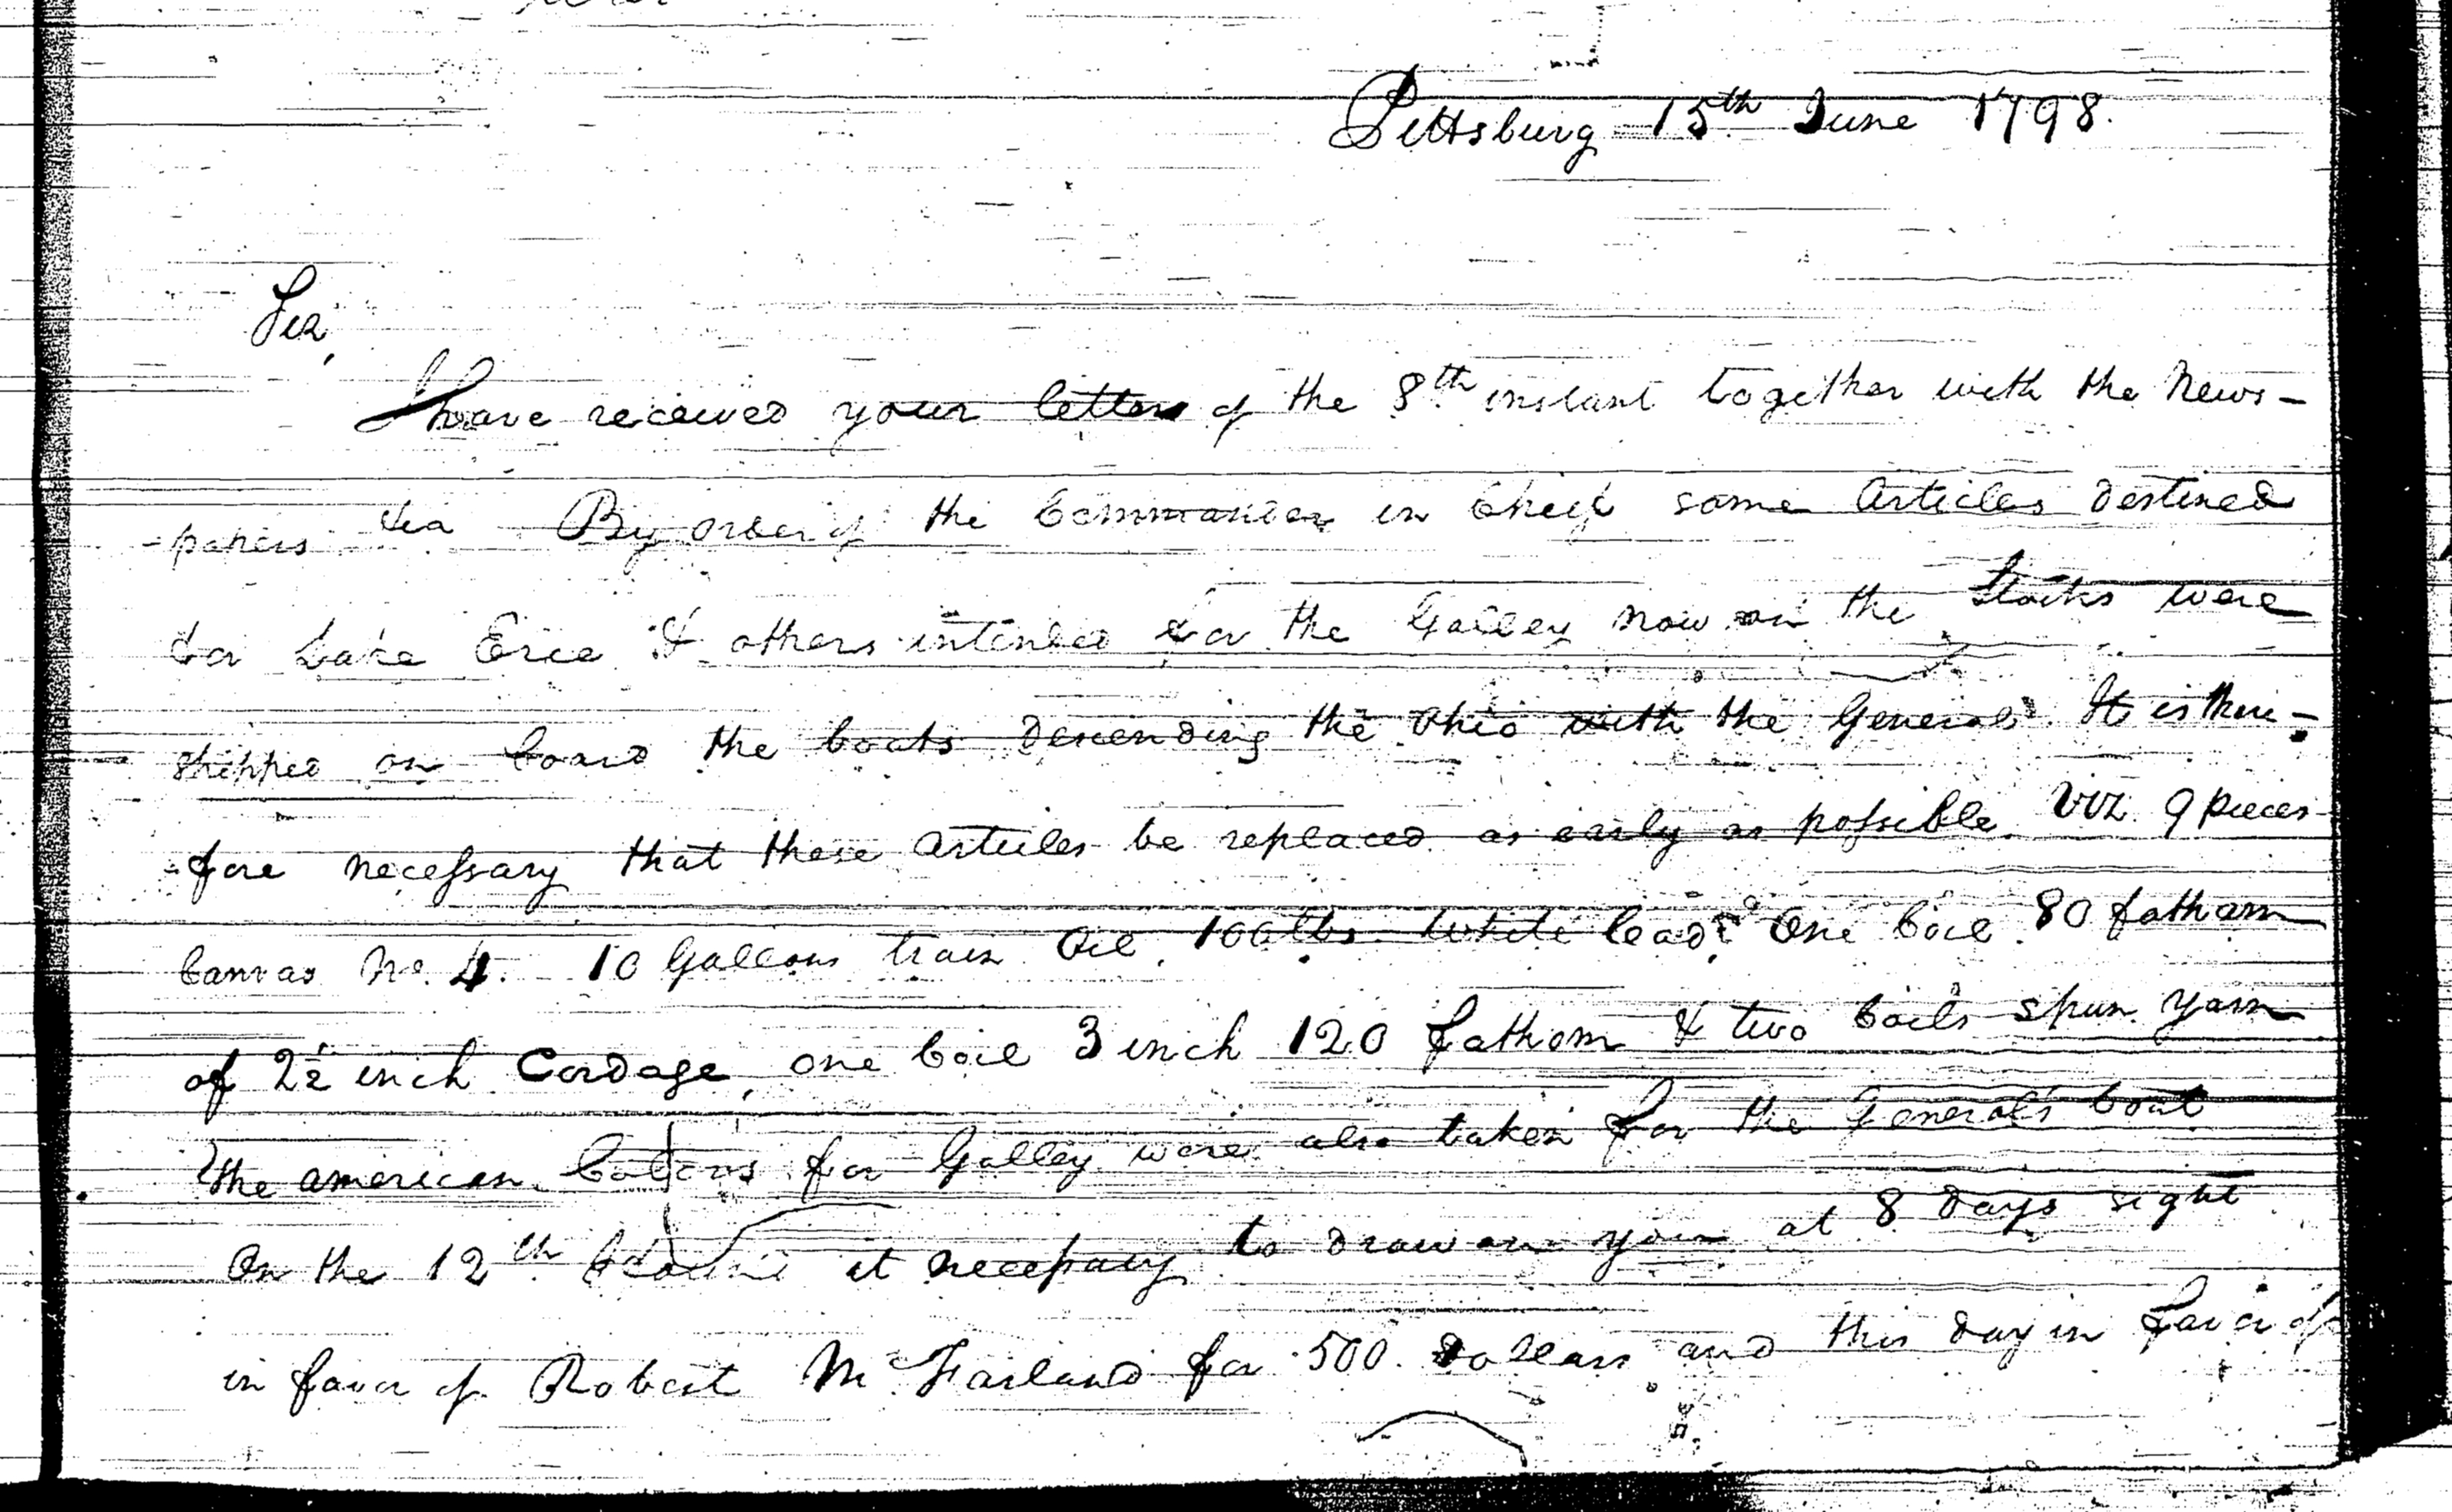 Pittsburg 15th June 1798.
Sir,
I have received your letters of the 8th instant together with the News-
-papers &ca By order of the Commander in Chief some Articles destined
for Lake Erie & others intended for the Galley now on the Stocks were
shipped on board the boats descending the Ohio with the General. It is there-
-fore necessary that these articles be replaced as early as possible. Viz. 9 pieces
Canvas No. 4. 10 Gallons train Oil, 100 lbs. White lead, One Coil 80 fathom
of 2½ inch Cordage, one Coil 3 inch 120 fathom & two Coils spun Yarn
The american Colors for Galley were also taken for the General's boat
On the 12th I found it necessary to draw on you at 8 days sight
in favor of Robert McFarland for 500 Dollars and this day in favor of